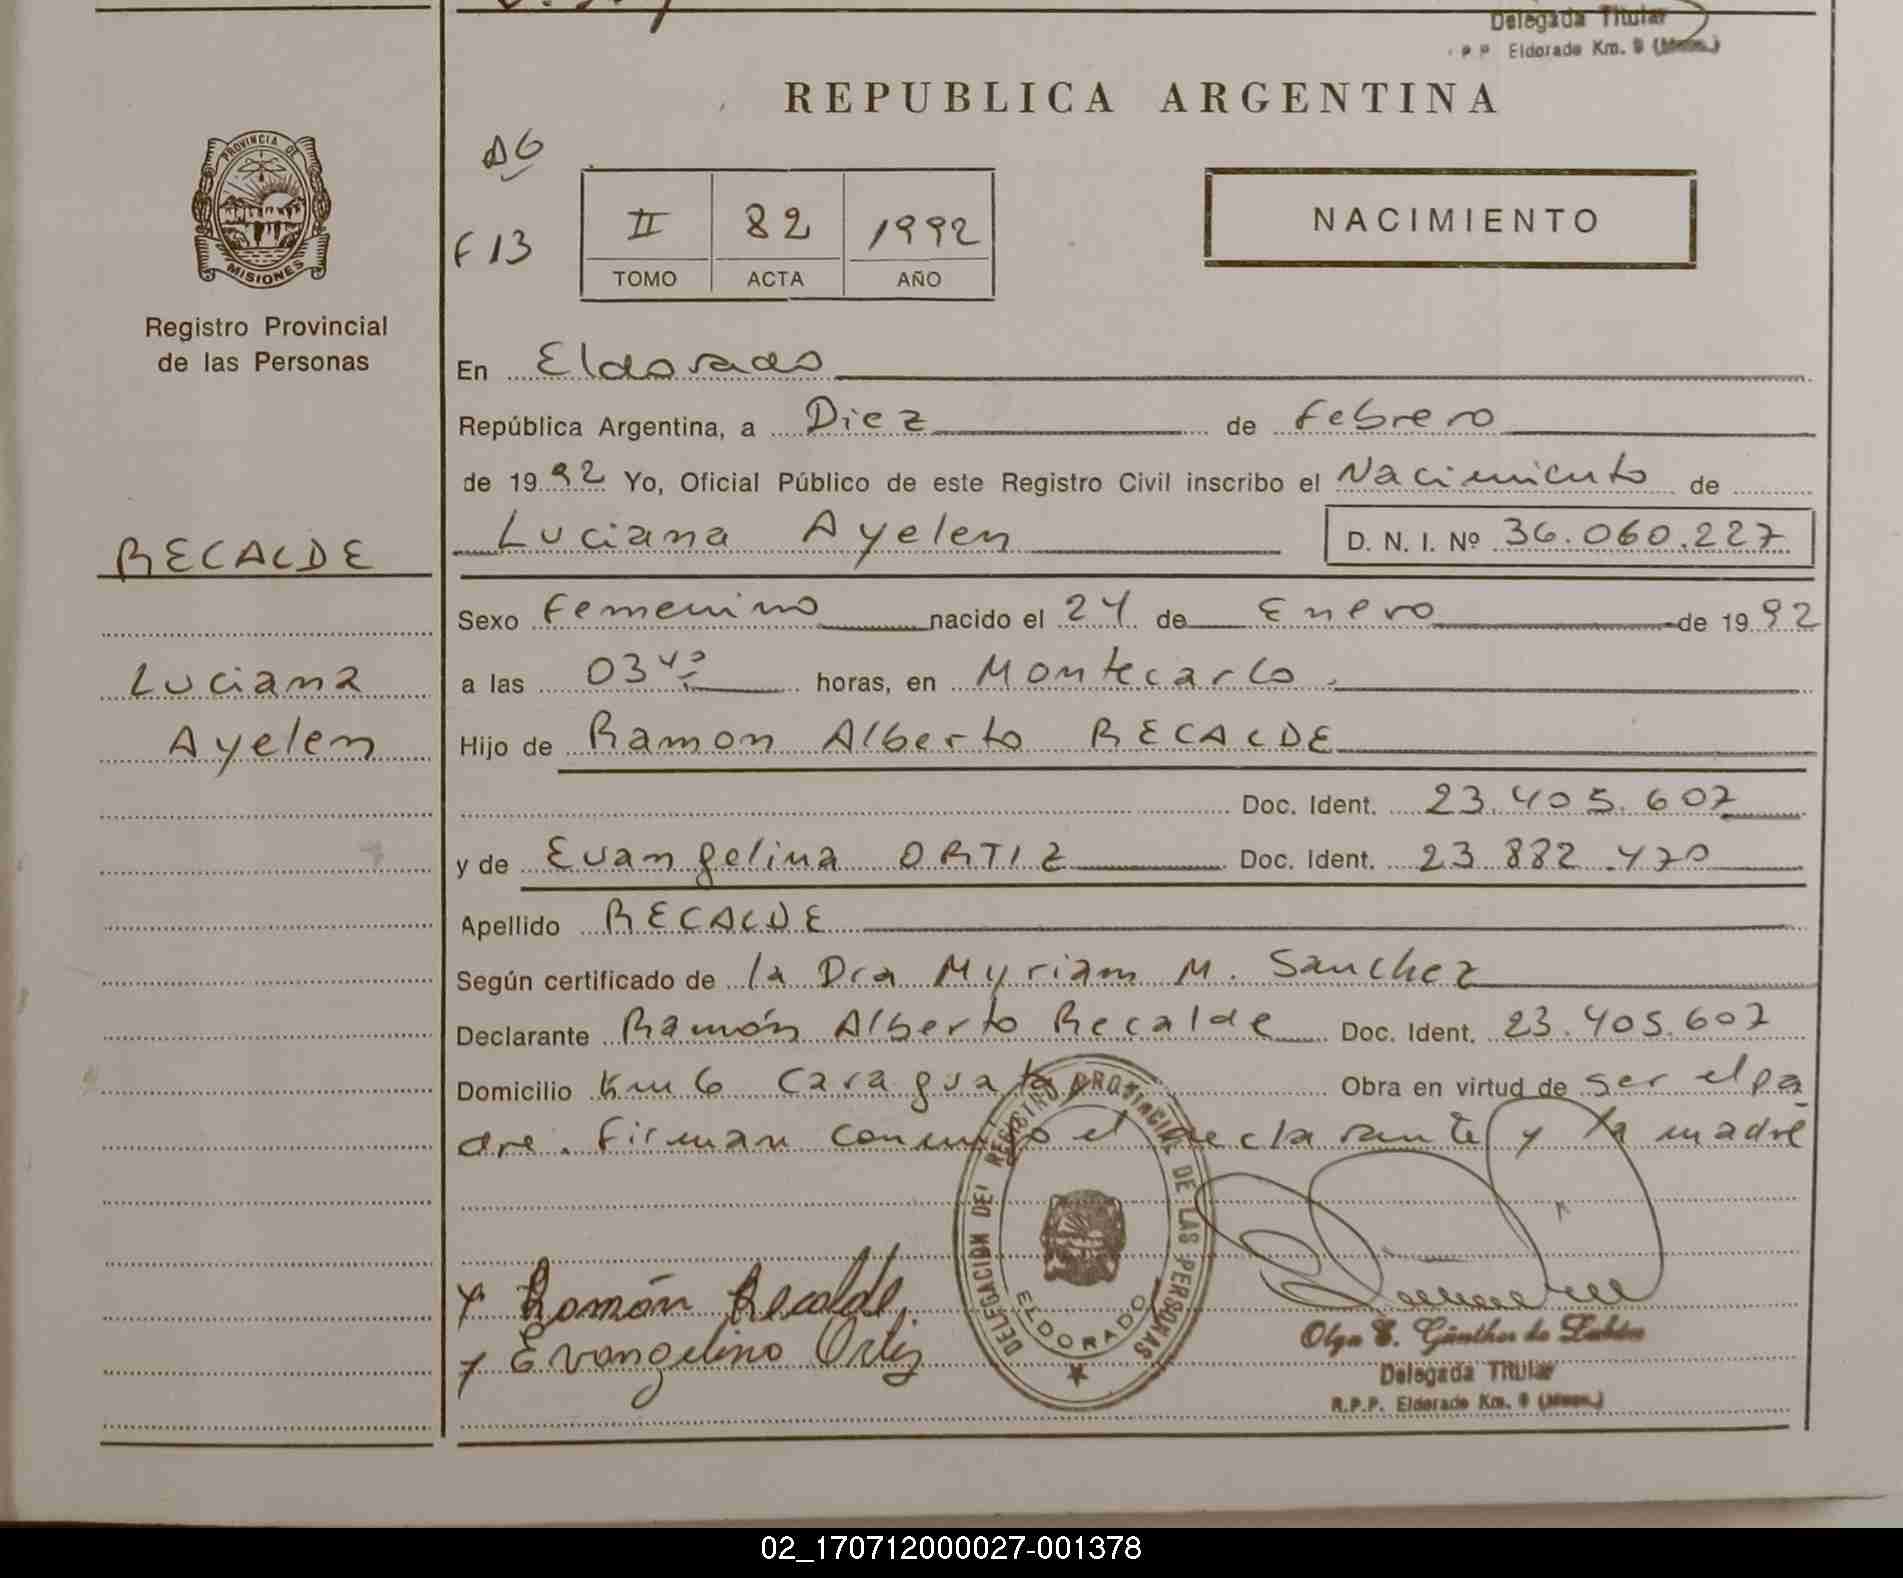 Delegada Titular
P.P. Eldorado Km. 9 (Mnes.)
REPUBLICA ARGENTINA
PROVINCIA DE
MISIONES
Registro Provincial
de las Personas
F 13
II 82 1992
TOMO ACTA AÑO
NACIMIENTO
En Eldorado
República Argentina, a Diez de Febrero
de 1992 Yo, Oficial Público de este Registro Civil inscribo el Nacimiento de
RECALDE
Luciana Ayelen D. N. I. Nº 36.060.227
Sexo Femenino nacido el 24 de Enero de 1992
Luciana
a las 03 40 horas, en Montecarlo.
Ayelen
Hijo de Ramon Alberto RECALDE
Doc. Ident. 23.405.607
y de Evangelina ORTIZ Doc. Ident. 23 882.470
Apellido RECALDE
Según certificado de la Dra Myriam M. Sanchez
Declarante Ramón Alberto Recalde Doc. Ident. 23.405.607
Domicilio Km 6 Caraguata Obra en virtud de ser el pa
dre. Firman conmigo el declarante y la madre
DELEGACION DEL REGISTRO PROVINCIAL DE LAS PERSONAS
ELDORADO
x Ramón Recalde.
x Evangelina Ortiz
Olga E. Günther de
Delegada Titular
R.P.P. Eldorado Km. 9 (Mnes.)
02_170712000027-001378